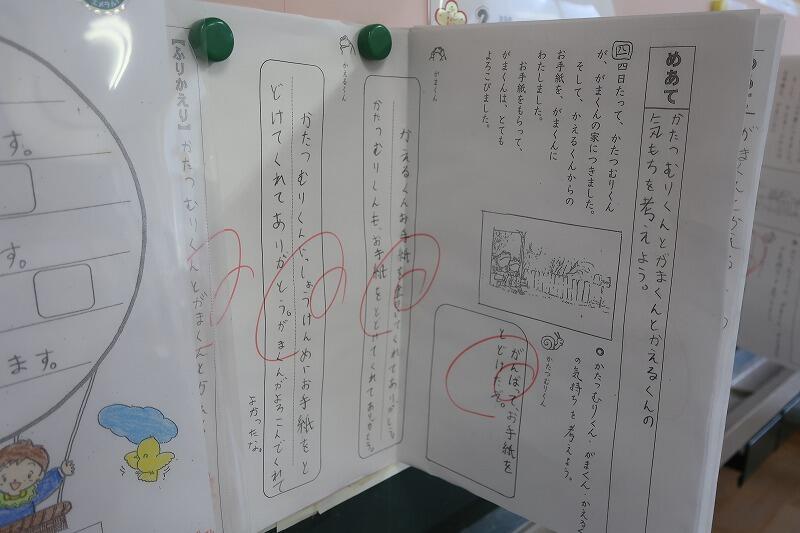 めあて
かたつむりくんとがまくんとかえるくんの
気もちを考えよう。
四 四日たって、かたつむりくん
が、がまくんの家につきました。
そして、かえるくんからの
お手紙を、がまくんに
わたしました。
お手紙をもらって、
がまくんは、とても
よろこびました。
○かたつむりくん・がまくん・かえるく
の気持ちを考えよう。
かたつむりくん
がんばってお手紙を
とどけたぞ。
がまくん
かえるくんお手紙を
てくれてありがとう。
かたつむりくんも、お手紙をとどけてくれてありがとう。
かえるくん
かたつむりくん、いっしょうけんめいお手紙をと
どけてくれてありがとう。がまくんがよろこんでくれて
よかったな。
【ふりかえり】
かたつむりくんとがまくんと
す。
す。
ます。